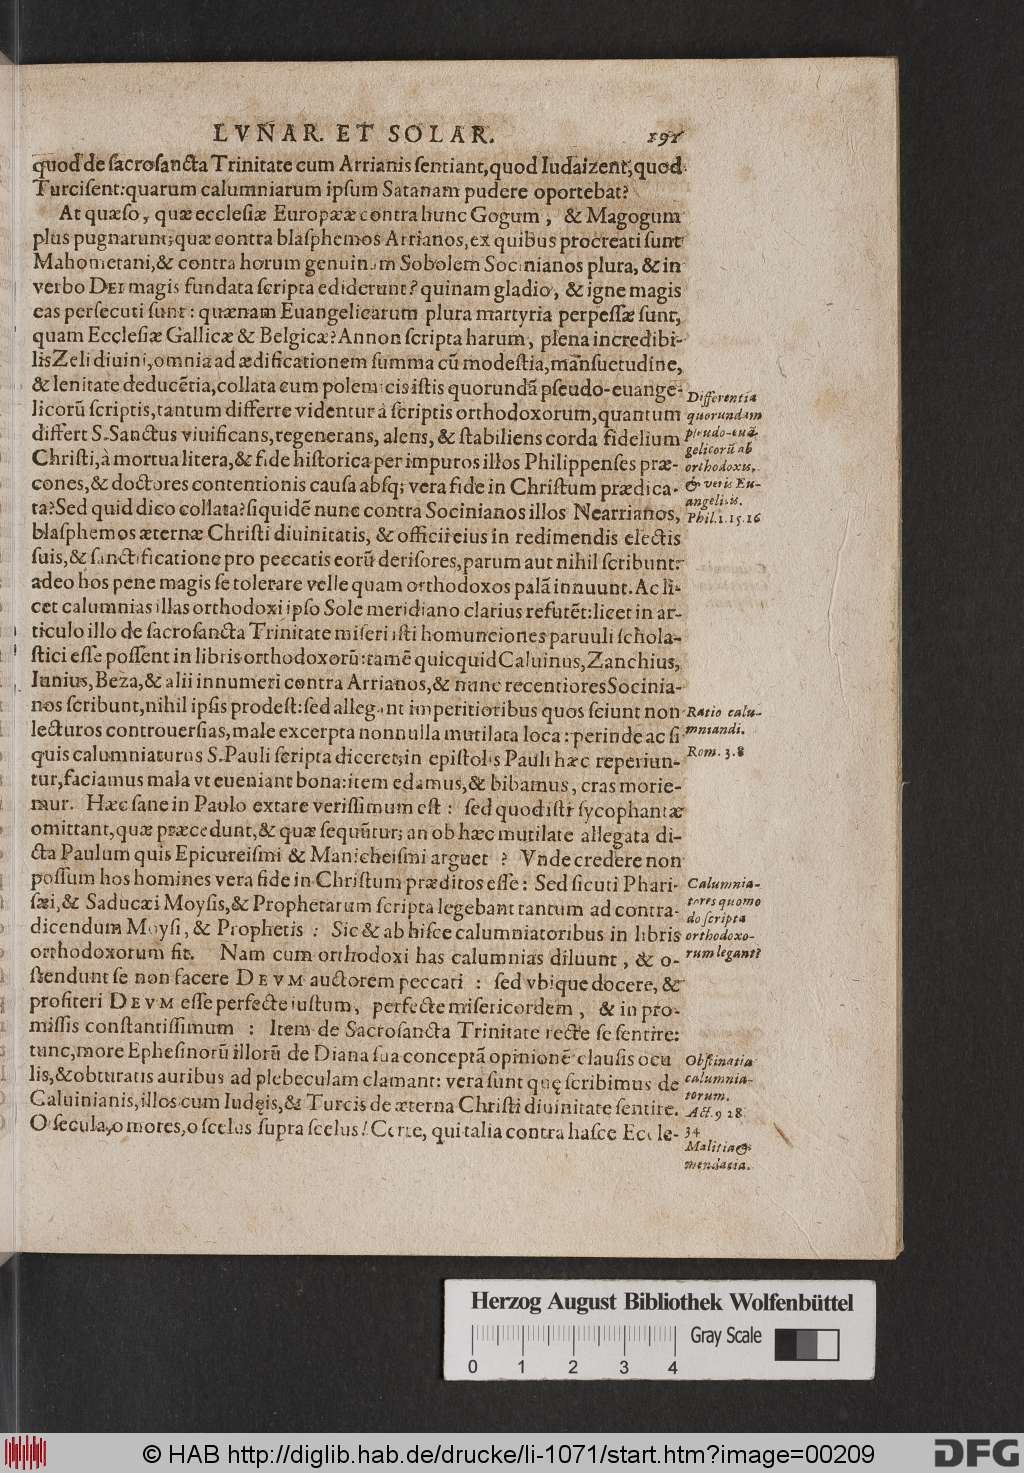 LVNAR. ET SOLAR. 191
quod de sacrosancta Trinitate cum Arrianis sentiant, quod Iudaizent, quod
Turcisent: quarum calumniarum ipsum Satanam pudere oportebat?
At quæso, quæ ecclesiæ Europææ contra hunc Gogum, & Magogum
plus pugnarunt; quæ contra blasphemos Arrianos, ex quibus procreati sunt
Mahometani, & contra horum genuinam Sobolem Socinianos plura, & in
verbo DEI magis fundata scripta ediderunt? quinam gladio, & igne magis
eas persecuti sunt: quænam Euangelicarum plura martyria perpessæ sunt,
quam Ecclesiæ Gallicæ & Belgicæ? Annon scripta harum, plena incredibi-
lis Zeli diuini, omnia ad ædificationem summa cū modestia, mansuetudine,
& lenitate deducētia, collata cum polemicis istis quorundā pseudo-euange-
licorū scriptis, tantum differre videntur à scriptis orthodoxorum, quantum
differt S. Sanctus viuificans, regenerans, alens, & stabiliens corda fidelium
Christi, à mortua litera, & fide historica per impuros illos Philippenses præ-
cones, & doctores contentionis causa absq; vera fide in Christum prædica-
ta? Sed quid dico collata? siquidē nunc contra Socinianos illos Nearrianos,
blasphemos æternæ Christi diuinitatis, & officii eius in redimendis electis
suis, & sanctificatione pro peccatis eorū derisores, parum aut nihil scribunt:
adeo hos pene magis se tolerare velle quam orthodoxos palā innuunt. Ac li-
cet calumnias illas orthodoxi ipso Sole meridiano clarius refutēt: licet in ar-
ticulo illo de sacrosancta Trinitate miseri isti homunciones paruuli schola-
stici esse possent in libris orthodoxorū: tamē quicquid Caluinus, Zanchius,
Iunius, Beza, & alii innumeri contra Arrianos, & nunc recentiores Socinia-
nos scribunt, nihil ipsis prodest: sed allegant imperitioribus quos sciunt non
lecturos controuersias, male excerpta nonnulla mutilata loca: perinde ac si
quis calumniaturus S. Pauli scripta diceret; in epistolis Pauli hæc reperiun-
tur, faciamus mala vt eueniant bona: item edamus, & bibamus, cras morie-
mur. Hæc sane in Paulo extare verissimum est: sed quod isti sycophantæ
omittant, quæ præcedunt, & quæ sequūtur; an ob hæc mutilate allegata di-
cta Paulum quis Epicureismi & Manicheismi arguet? Vnde credere non
possum hos homines vera fide in Christum præditos esse: Sed sicuti Phari-
sæi, & Saducæi Moysis, & Prophetarum scripta legebant tantum ad contra-
dicendum Moysi, & Prophetis: Sic & ab hisce calumniatoribus in libris
orthodoxorum fit. Nam cum orthodoxi has calumnias diluunt, & o-
stendunt se non facere DEVM auctorem peccati: sed vbique docere, &
profiteri DEVM esse perfecte iustum, perfecte misericordem, & in pro-
missis constantissimum: Item de Sacrosancta Trinitate recte se sentire:
tunc, more Ephesinorū illorū de Diana sua conceptā opinionē clausis ocu
lis, & obturatis auribus ad plebeculam clamant: vera sunt quę scribimus de
Caluinianis, illos cum Iudęis, & Turcis de æterna Christi diuinitate sentire.
O secula, o mores, o scelus supra scelus! Certe, qui talia contra hasce Eccle-
Differentia
quorundam
pseudo-euā-
gelicorū ab
orthodoxis,
& veris Eu-
angelicis.
Phil. 1. 15. 16
Ratio calu-
mniandi.
Rom. 3. 8
Calumnia-
tores quomo
do scripta
orthodoxo-
rum legant?
Obstinatia
calumnia-
torum.
Act. 9 28
34
Malitia &
mendacia.
Herzog August Bibliothek Wolfenbüttel
Gray Scale
0 1 2 3 4
© HAB http://diglib.hab.de/drucke/li-1071/start.htm?image=00209
DFG